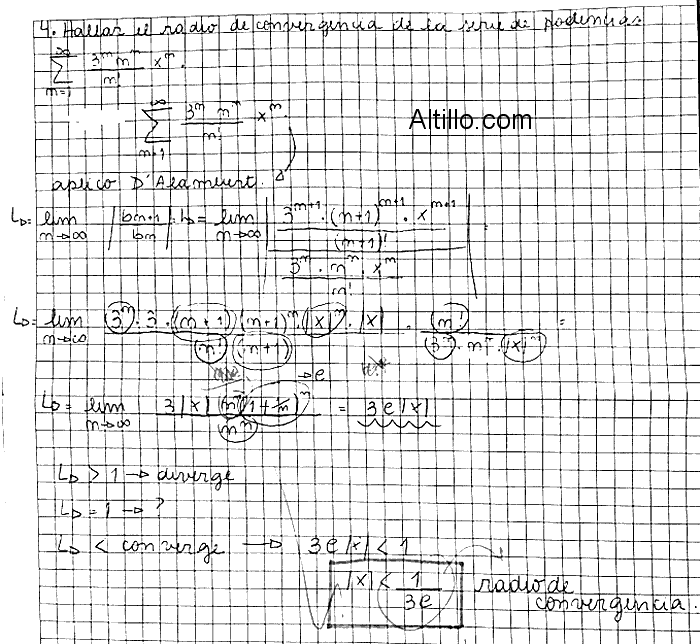 4. Hallar el radio de convergencia de la serie de potencias:
∞ ∑ n=1 3^n n^n / n! x^n.
∞ ∑ n=1 3^n n^n / n! x^n.
Altillo.com
aplico D'Alambert.
L_D = lim n→∞ | bn+1 / bn | L_D = lim n→∞ | 3^n+1 · (n+1)^n+1 · x^n+1 / (n+1)! / 3^n · n^n · x^n / n! | =
L_D = lim n→∞ 3^n · 3 · (n+1) (n+1)^n · |x|^n · |x| / n! (n+1) · n! / 3^n · n^n · |x|^n =
→ e
L_D = lim n→∞ 3 |x| n^n (1 + 1/n)^n / n^n = 3e|x|
L_D > 1 → diverge
L_D = 1 → ?
L_D < converge → 3e|x| < 1
|x| < 1 / 3e radio de
convergencia.